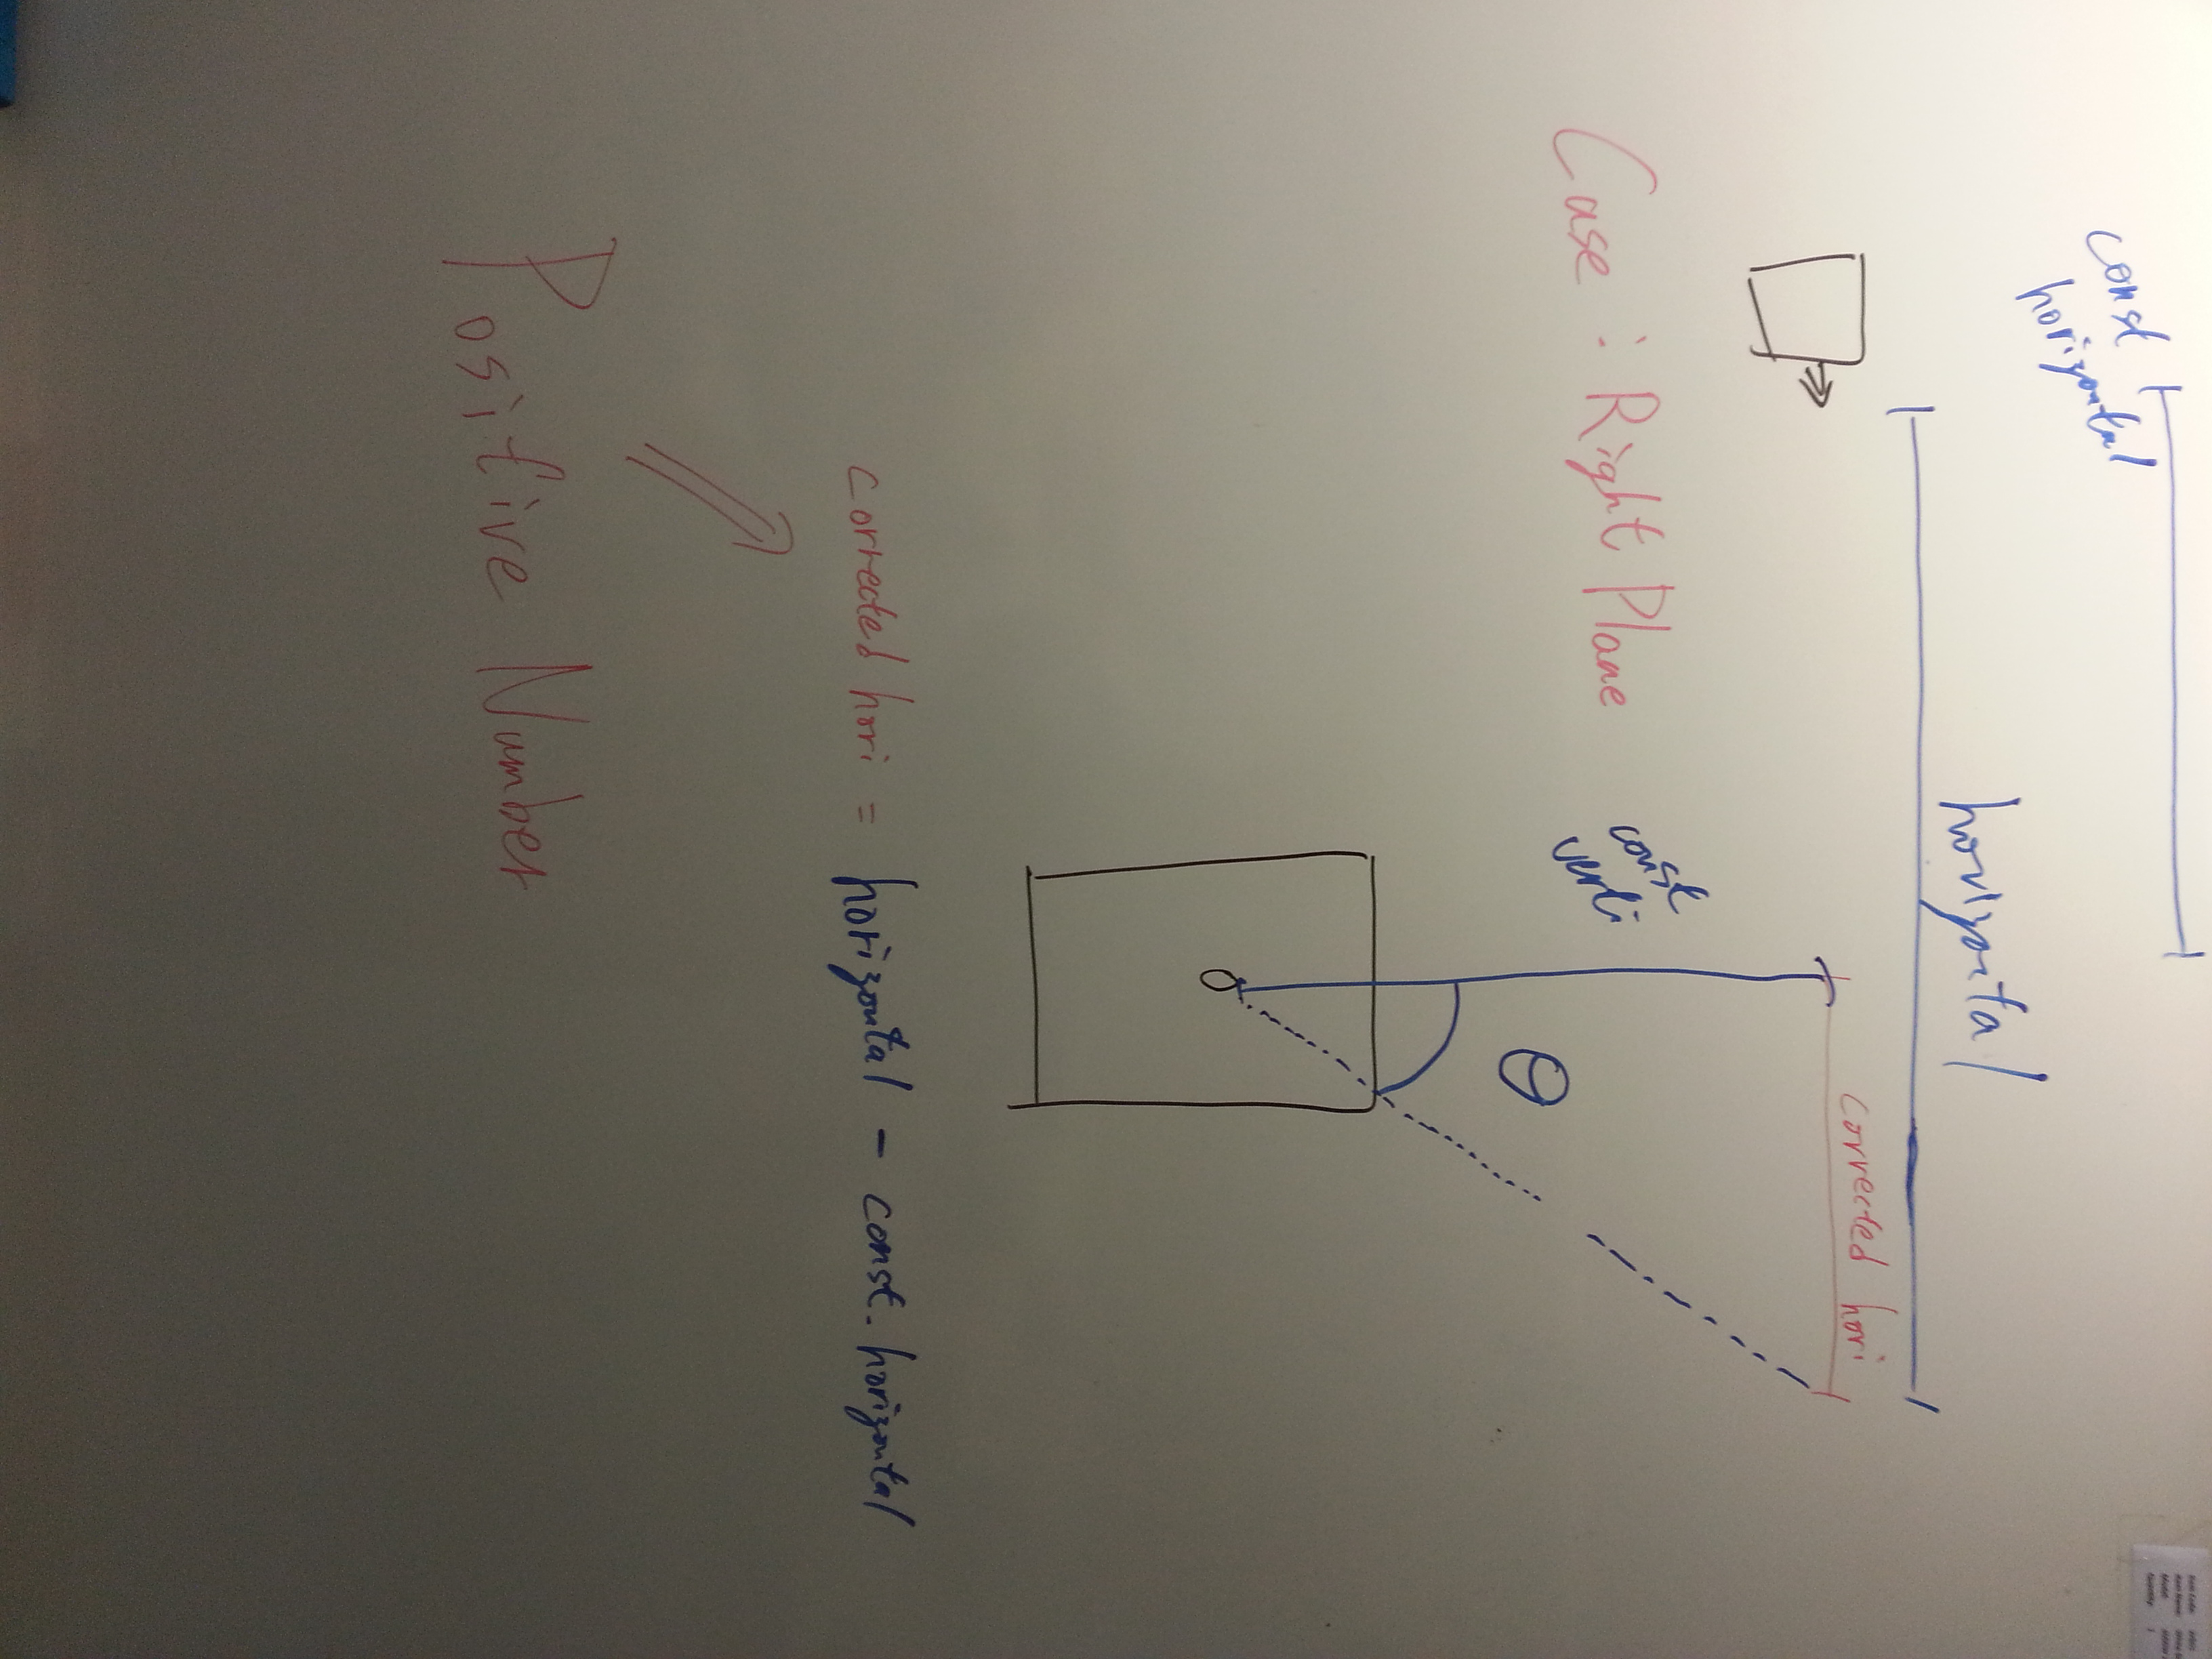 const
horizontal
horizontal
corrected hori
Case : Right Plane
const
verti
θ
corrected hori = horizontal - const. horizontal
Positive Number